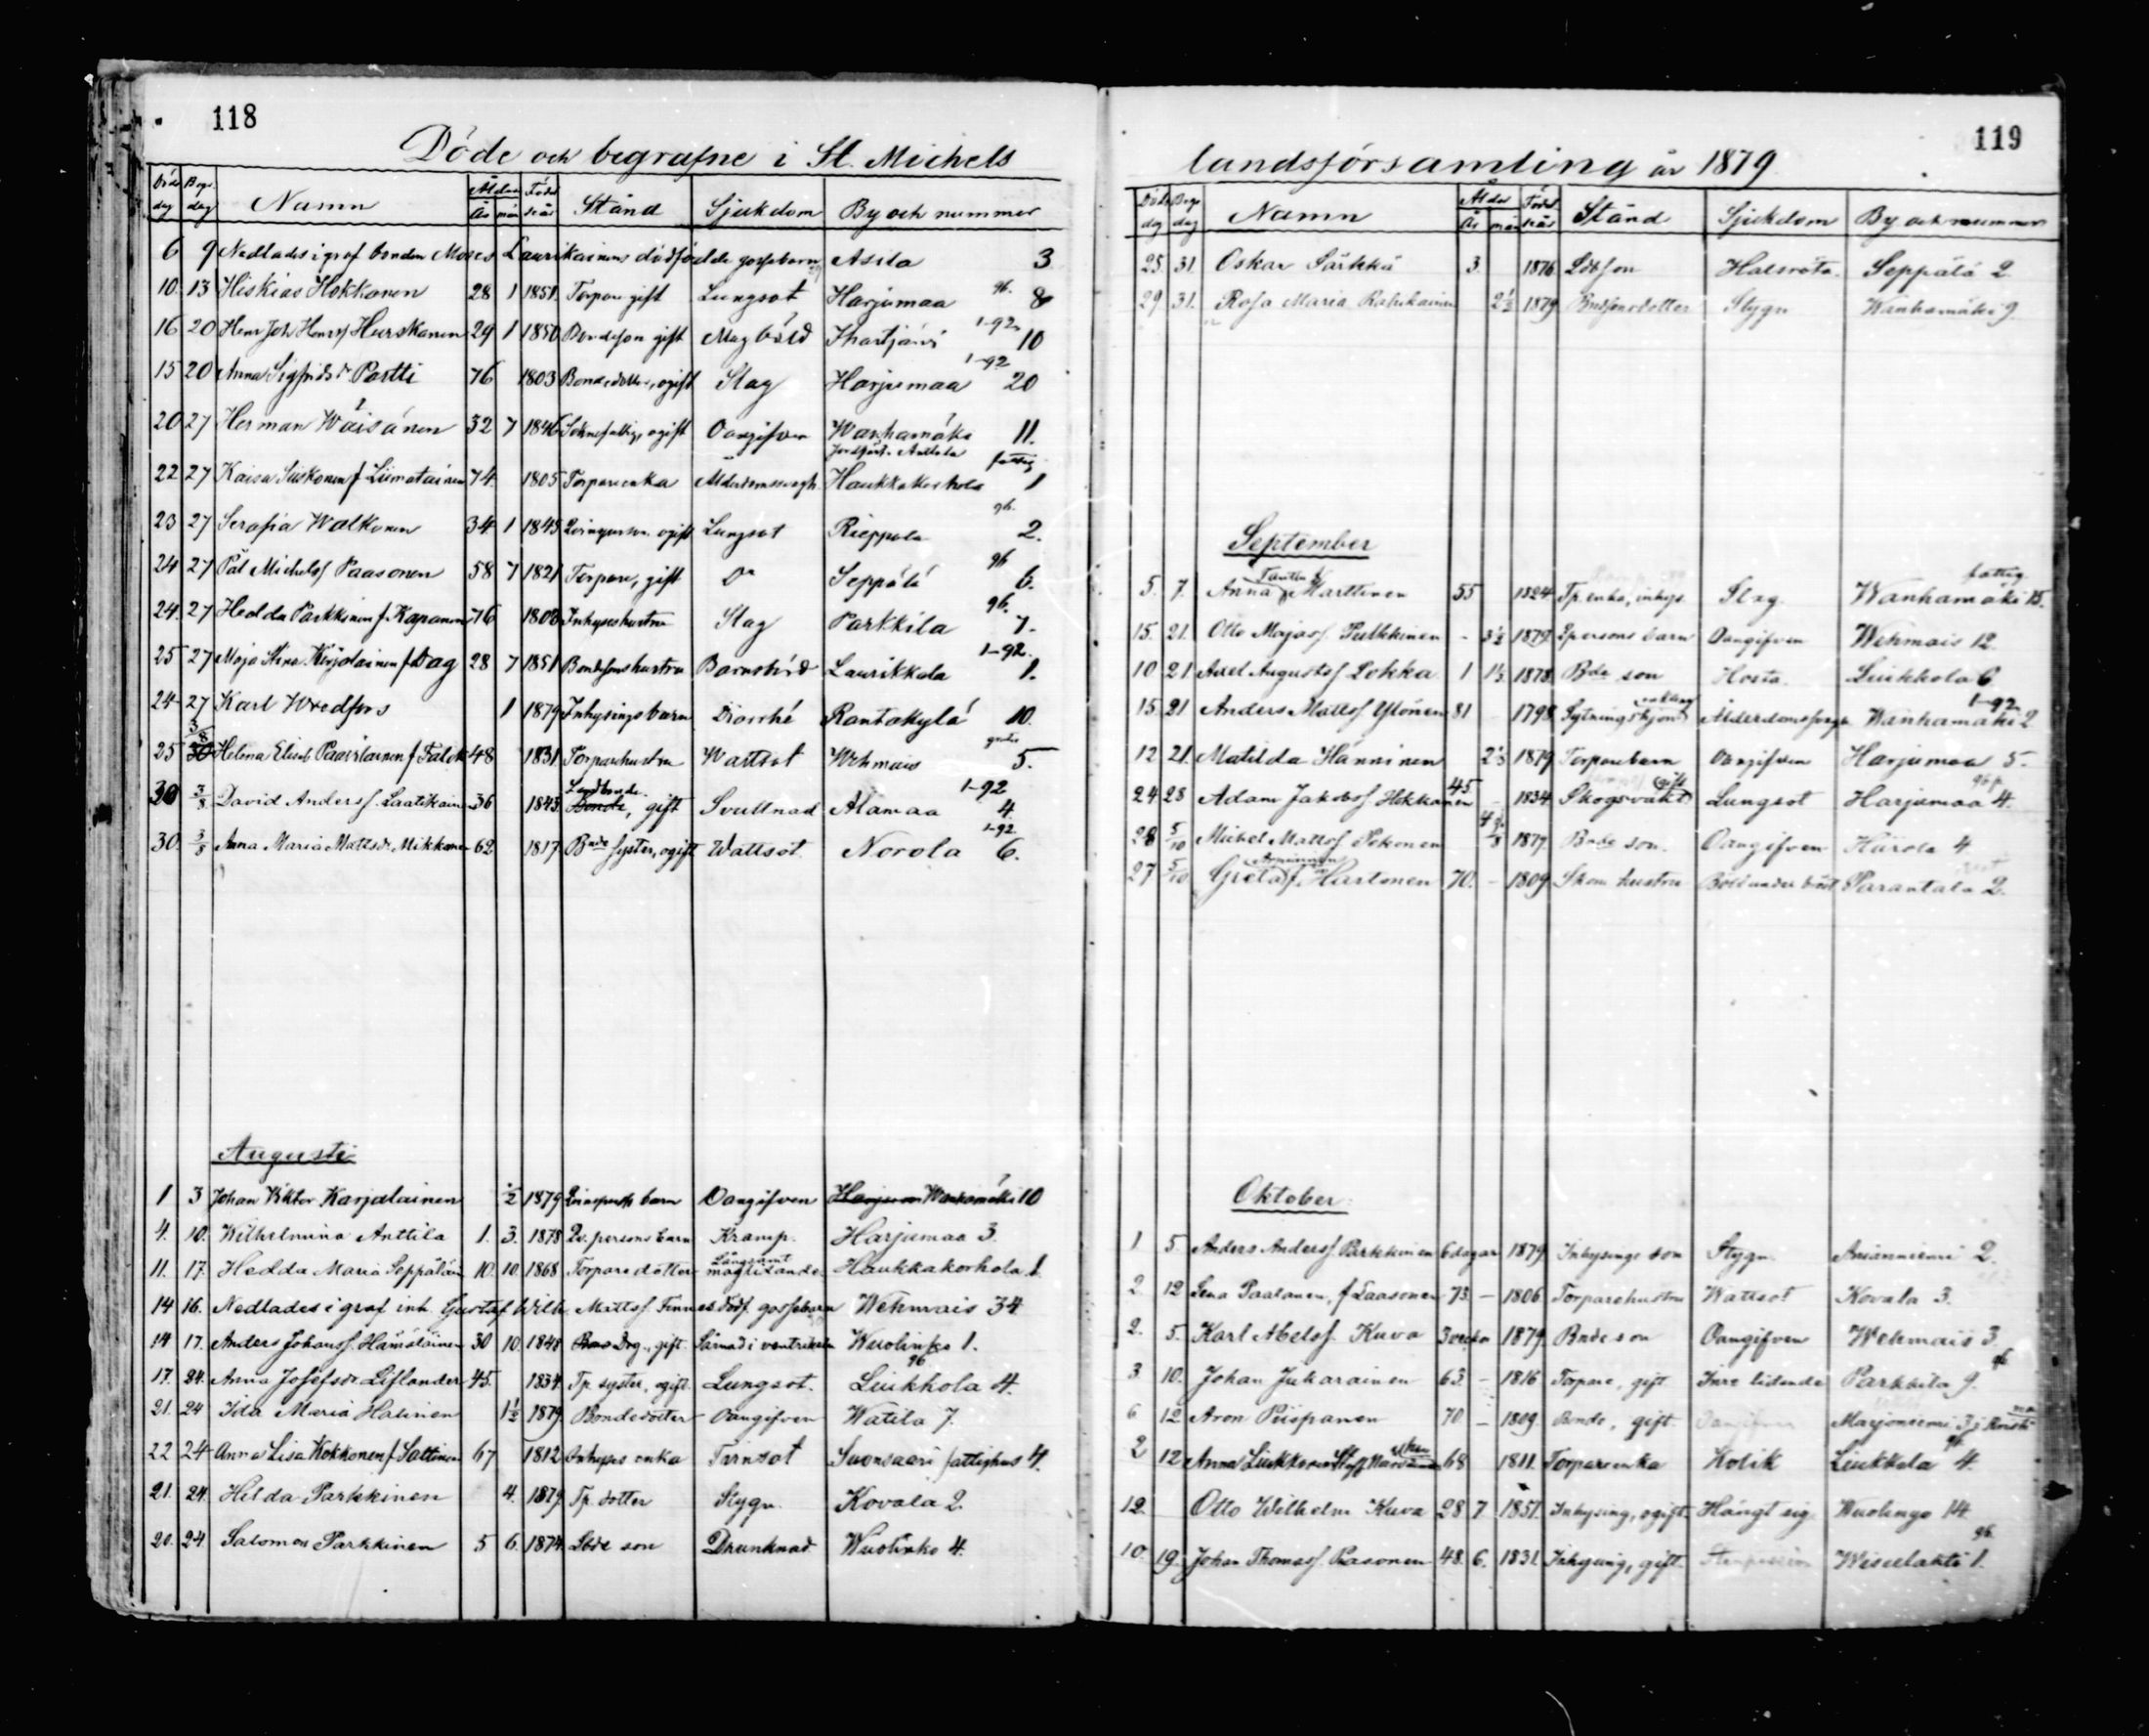 118
Döde och begrafne i St. Michels
Döds dag Begr. dag Namn Ålder År mån Född år Stånd Sjukdom By och nummer
6 9 Nedlades i graf bonden Moses Laurikainens dödfödde gossebarn Asila 3
10. 13 Hiskias Hokkanen 28 1 1851. Torpare gift Lungsot Harjumaa 96. 8
16 20 Henr. Joh. Henrsf Hurskanen 29 1 1850 Bondeson gift Magböld Ihastjärvi 1-92 10
15 20 Anna Sigfridsdr Partti 76 1803 Bondedotter, ogift Slag Harjumaa 1-92 20
20 27 Herman Wäisänen 32 7 1846 ogift Oangifven Wanhamäki 11.
22 27 Kaisa Siiskonen f Liimatainen 74. 1805 Torpareenka Ålderdomssvagh. Haukkakorhola fattig 1
23 27 Serafia Walkonen 34. 1 1845 ogift Lungsot Rieppola 96. 2.
24 27 Pål Michelsf Paasonen 58 7 1821 Torpare, gift Do Seppälä 96 6.
24. 27 Hedda Parkkinen f. Kapanen 76 1803 Inhyseshustru Slag Parkkila 96. 7.
25 27 Maja Stina Karjalainen f Dag 28 7 1851 Bondesonshustru Barnsbörd Laurikkala 1-92. 1.
24 27 Karl Wredfors 1 1879 Inhysingsbarn Diarrhé Rantakylä 10.
25 30 3/8 Helena Elisab. Paavilainen f Falck 48 1831. Torparehustru Wattsot Wehmais 5.
30 3/8 David Andersf. Laatikain 36 1843. Bonde Landbonde, gift Svullnad Alamaa 1-92 4.
30. 3/8 Anna Maria Mattsdr. Mikkonen 62 1817 Bnde syster, ogift Wattsot. Norola 1-92 6.
Augusti
1 3 Johan Viktor Karjalainen ½ 1879 barn Oangifven Harjumaa Wanhamäki 10
4. 10. Wilhelmina Anttila 1. 3. 1878 Qv. persons barn Kramp. Harjumaa 3.
11. 17. Hedda Maria Seppäläin 10. 10. 1868 Torparedotter Långsamt maglidande Haukkakorhola 1.
14 16. Nedlades i graf inh. Gustaf Wilh. Mattsf. Finnes dödf. gossebarn Wehmais 34.
14 17. Anders Johansf. Hämäläinen 30 10. 1848 Drg., gift. Sårnad i ventrikeln Wuolinko 1.
17. 24. Anna Josefsdr Liflander 45. 1834. Tp. syster, ogift. Lungsot. Liukkola 96 4.
21. 24 Ida Maria Halinen 1½ 1879. Bondedotter Oangifven Watila 7.
22 24 Anna Lisa Kokkonen f Sattinen 67 1812 Inhyses enka Tärnsot Suonsaari fattighus 4.
21. 24. Hilda Parkkinen 4. 1879. Tp. dotter Stygn. Kovala 2.
20. 24. Salomon Parkkinen 5 6. 1874. Lbde son Drunknad. Wuolinko 4.
119
landsförsamling år 1879
Döds dag Begr. dag Namn Ålder År mån Född år Stånd Sjukdom By och nummer
25. 31. Oskar Särkkä 3. 1876 Ldb son Halsröta. Seppälä 2.
29 31. Rosa Maria Rahikainen 2½ 1879 Bndsonsdotter Stygn Wanhamäki 9.
September
5. 7. Anna f Marttinen 55 1824 Tp. enka, inhys. Slag. Wanhamäki fattig 15.
15. 21. Otto Majasf. Pulkkinen - 3½ 1879. Qpersons barn Oangifven Wehmais 12.
10 21. Axel Augustsf Lokka 1 1½ 1878. Bnde son Hosta. Liukkola 6
15. 21 Anders Mattsf Ylönen 81 - 1798. Ålderdomssvagh Wanhamäki 1-92 2.
12 21. Matilda Hänninen 2½ 1879 Torparebarn Oangifven Harjumaa 5.
24 28 Adam Jakobsf Hokkanen 45 - 1834 Skogsvakt gift Lungsot Harjumaa 4.
28 5/10 Michel Mattsf Pekonen 1879 Bnde son. Oangifven Härola 4
27 5/10 Greta f. Hartonen 70. - 1809. Skom. hustru Böld under bröst Parantala 2.
Oktober.
1 5. Anders Andersf. Parkkinen 6 dagar 1879. Inhysings son Stygn. Anianniemi 2.
2. 12 Lena Paalanen, f Laasonen 73. - 1806 Torparehustru Wattsot Kovala 3.
2. 5. Karl Abelsf. Kuva 3 veckor 1879. Bnde son Oangifven Wehmais 3.
3 10. Johan Jukarainen 63. - 1816 Torpare, gift Inre lidande Parkkila 96 9.
6 12. Aron Piispanen 70. - 1809. Bonde, gift. Oangifven Marjoniemi 3
2 12 Anna Liukkonen 68 1811. Torpareenka Kolik Liukkola 96 4.
12. Otto Wilhelm Kuva 28 7 1851. Inhysing, ogift. Hängt sig. Wuolingo 14.
10. 19. Johan Thomasf. Paasonen 48. 6. 1831. Inhysing, gift. Wisulahti 96. 1.